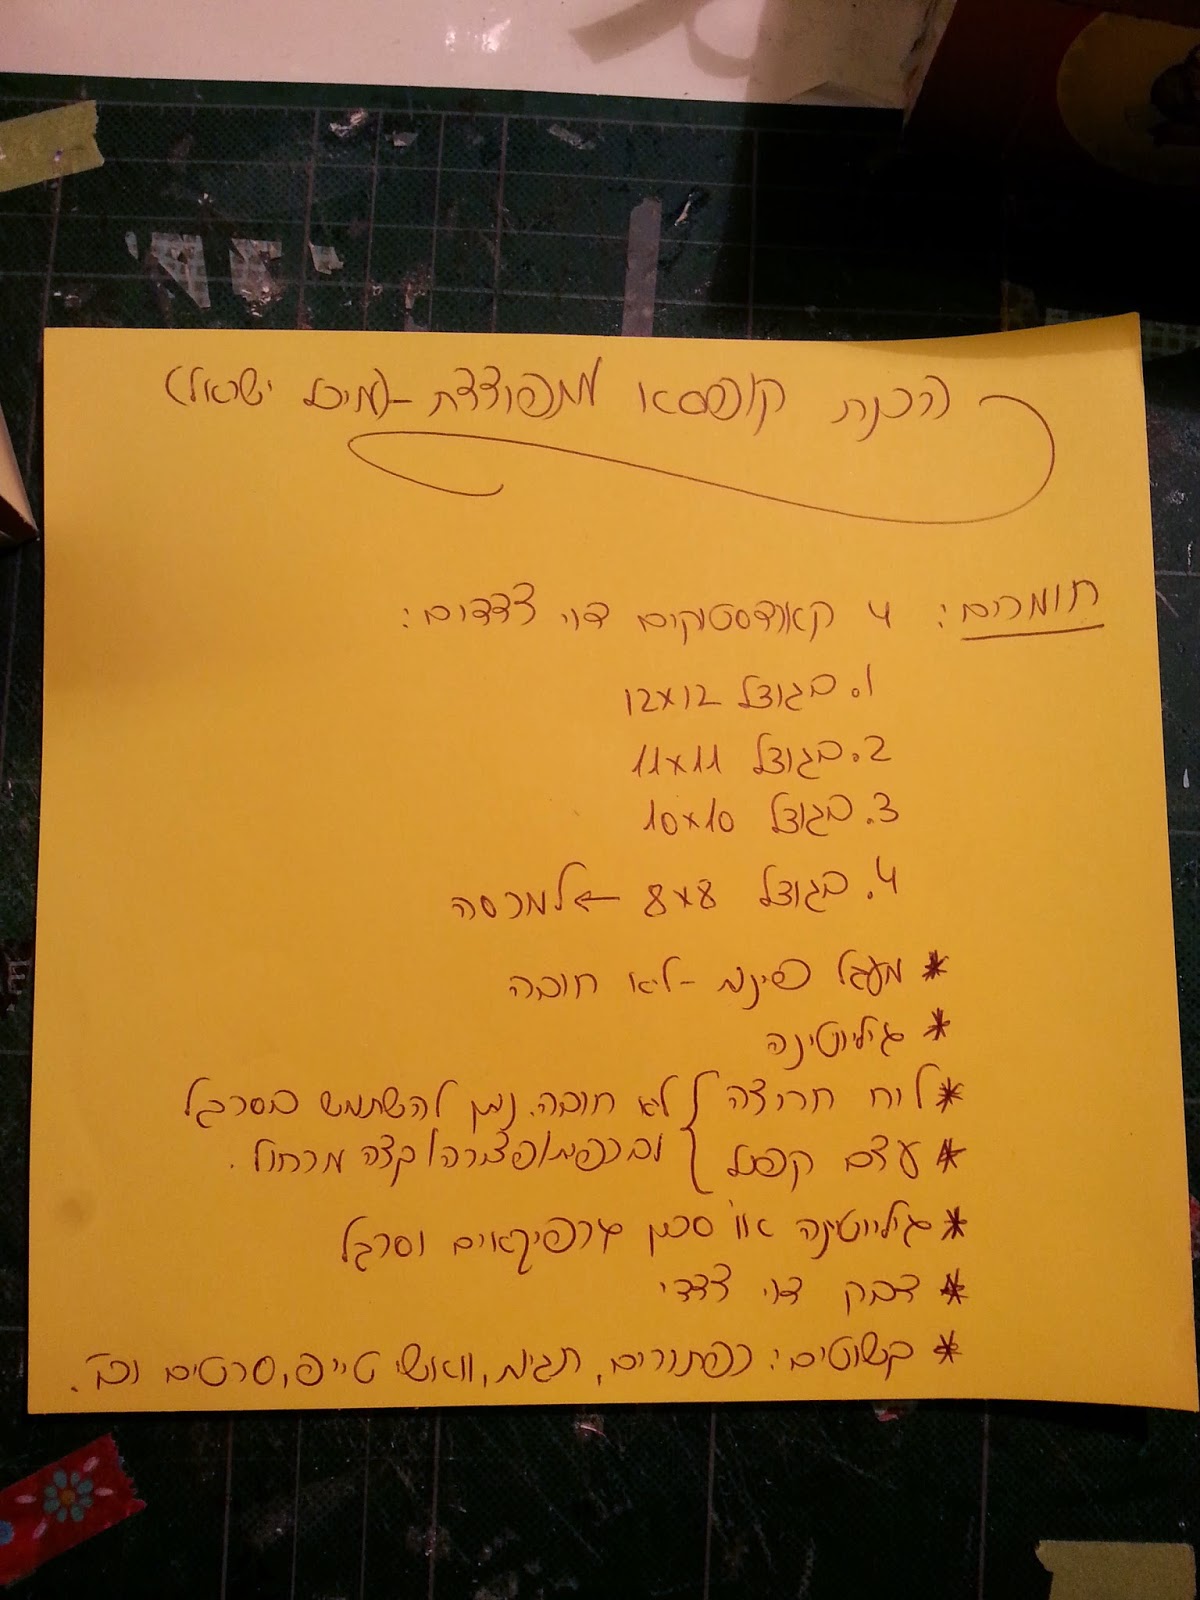 הכנת קופסא מתפודדת -(מיכל ישראל)
חומרים: 4 קארדסטוקים דוי צדדים:
1. בגודל 12x12
2. בגודל 11x11
3. בגודל 10x10
4. בגודל 8x8 ← למכסה
* מעגל פינות - לא חובה
* גיליוטינה
* לוח חריצה } לא חובה. ניתן להשתמש בסרגל
* עצם קיפול } ובכפית/פצירה/קצה מכחול.
* גיליוטינה או סכין גרפיקאים וסרגל
* דבק דוי צדדי
* קשוטים: כפתורים, תגיות, וואשי טייפ, סרטים וכו'.